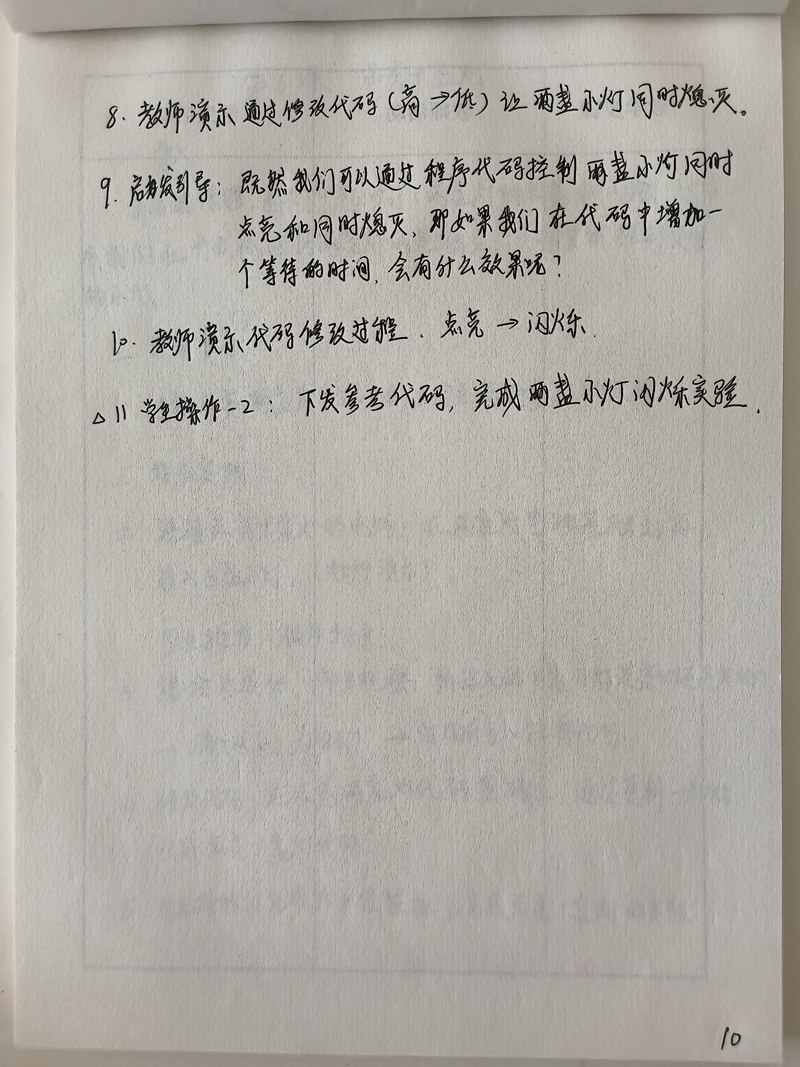 8. 教师演示通过修改代码(高→低)让两盏小灯同时熄灭。
9. 启发引导:既然我们可以通过程序代码控制两盏小灯同时
点亮和同时熄灭,那如果我们在代码中增加一
个等待的时间,会有什么效果呢?
10. 教师演示代码修改过程.点亮→闪烁.
△11 学生操作-2:下发参考代码,完成两盏小灯闪烁实验.
10